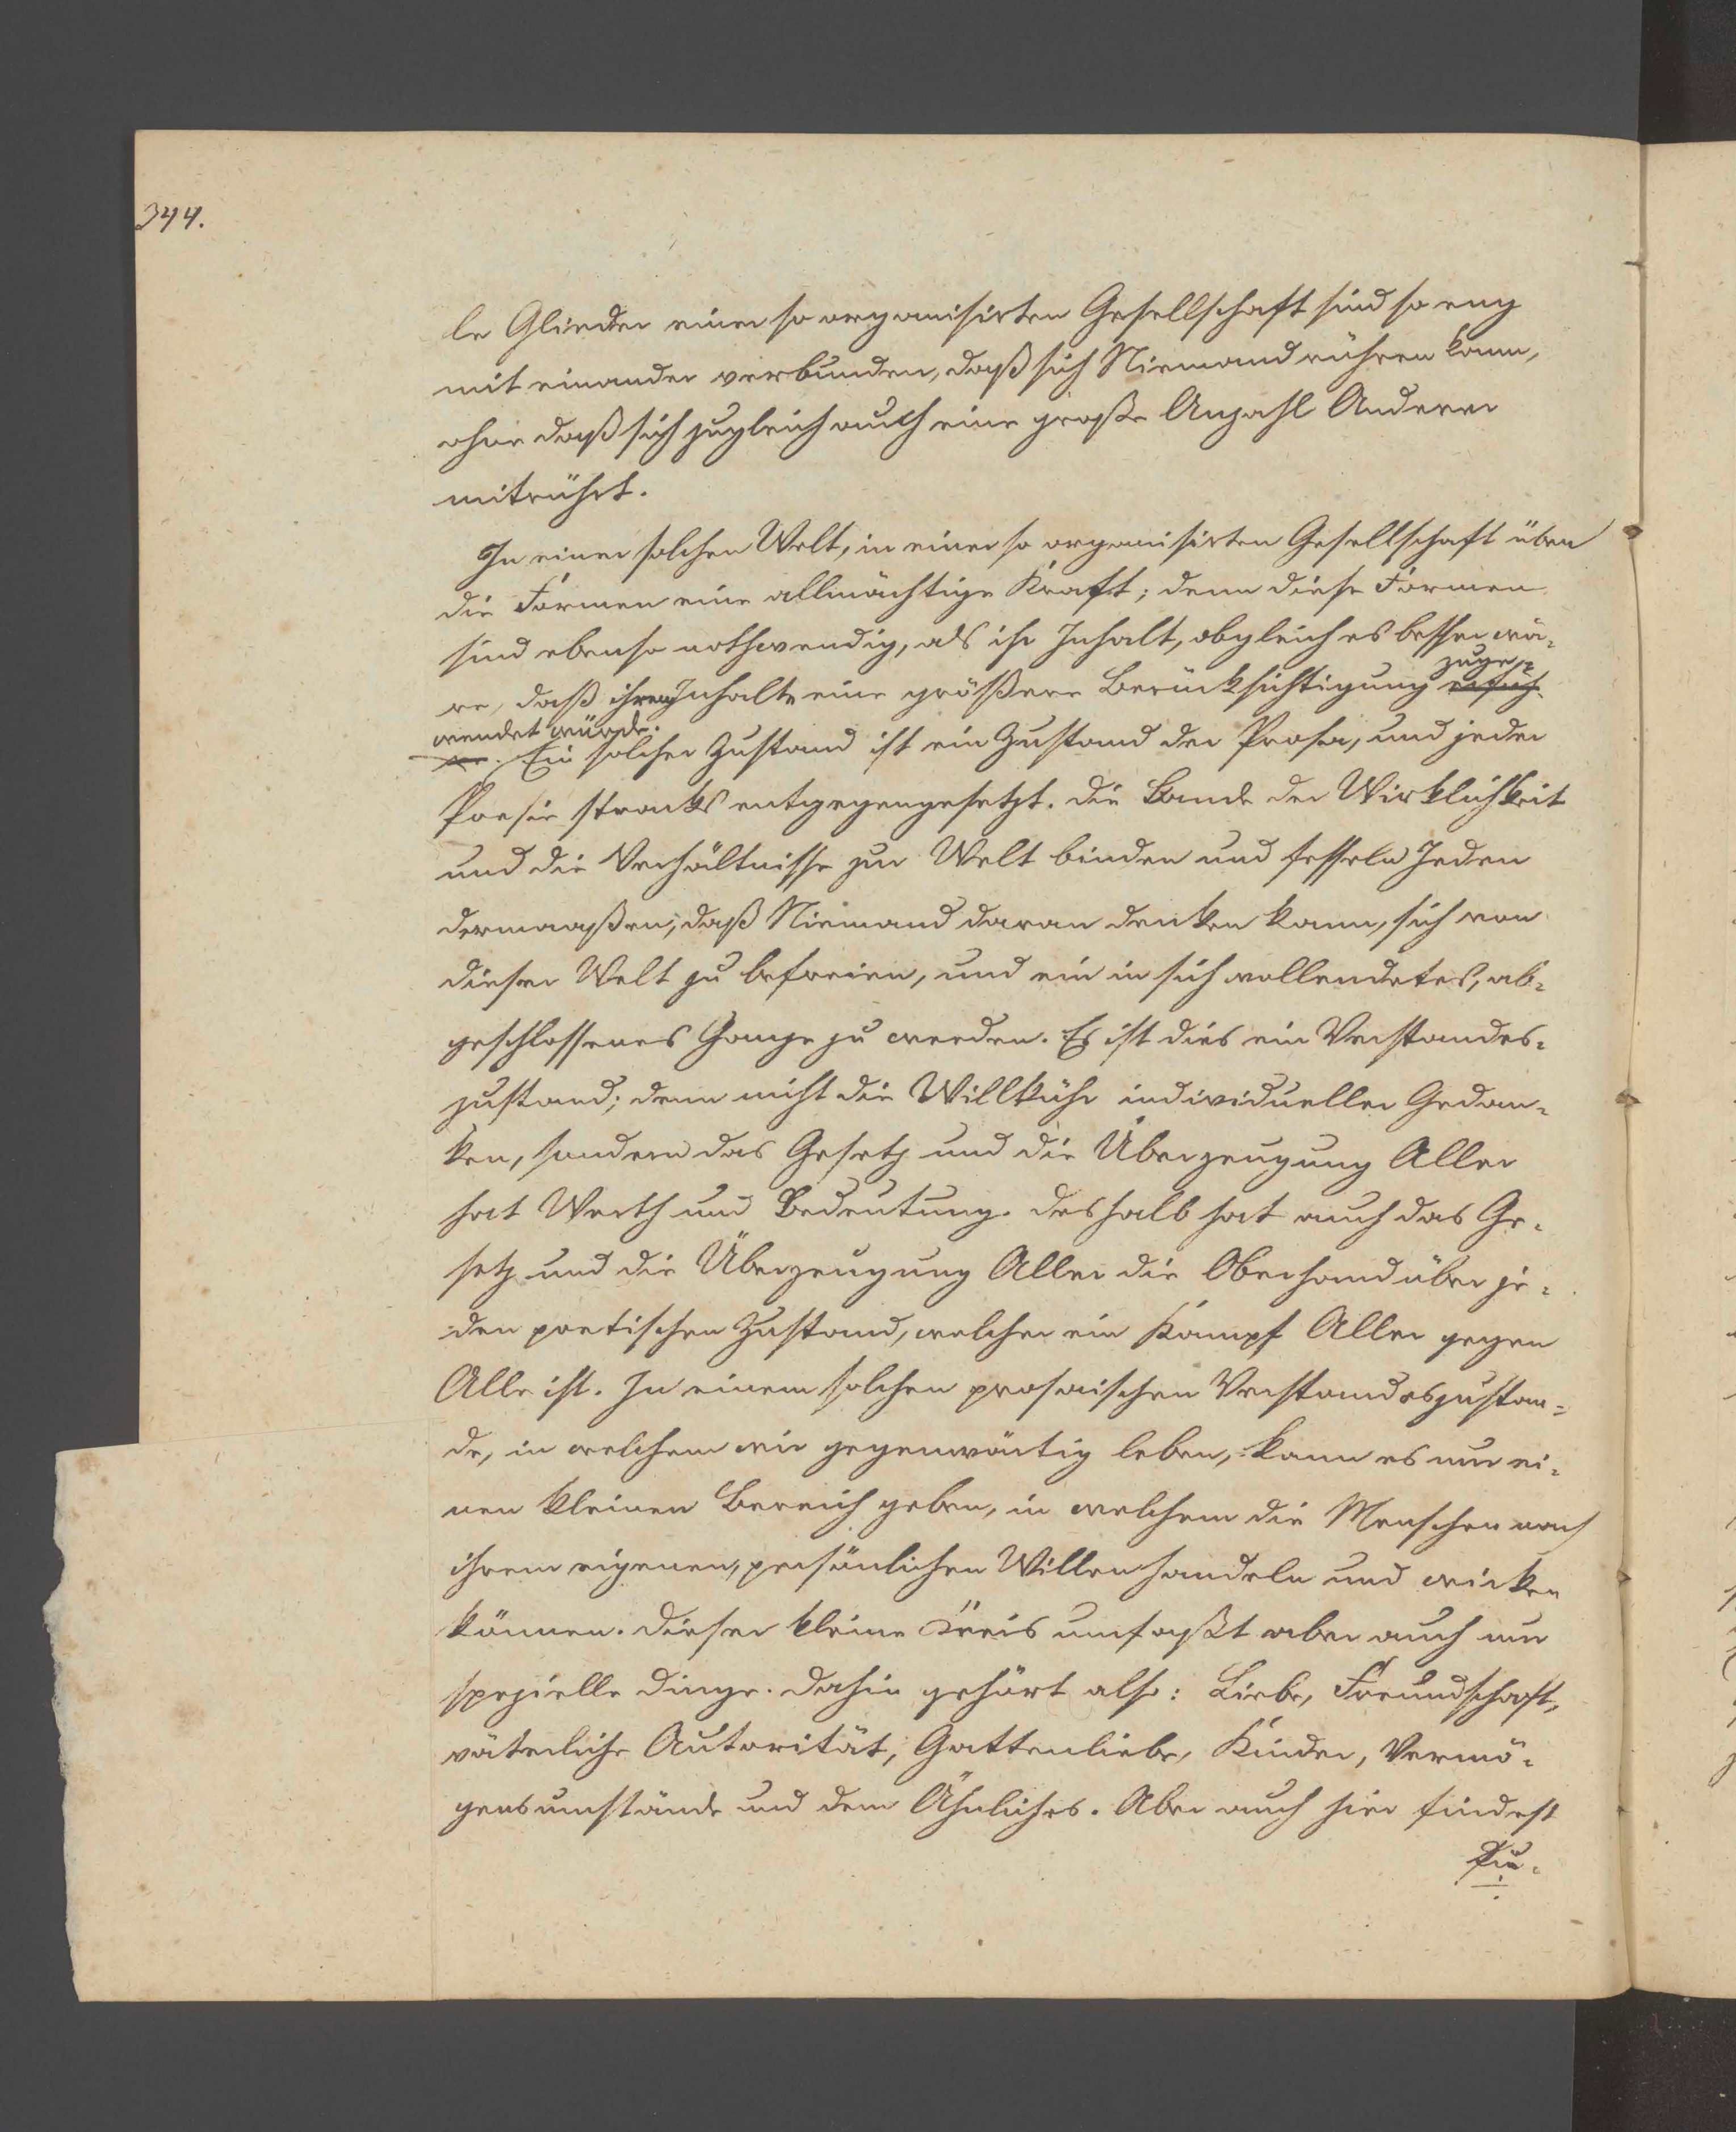 344.
le Glieder einer so organisirten Gesellschaft sind so eng
mit einander verbunden, daß sich Niemand rühren kann,
ohne daß sich zugleich auch eine große Anzahl Anderer
mitrührt.
In einer solchen Welt, in einer so organisirten Gesellschaft üben
die Formen eine allmächtige Kraft; denn diese Formen
sind ebenso nothwendig, als ihr Inhalt, obgleich es besser wä-
zuge-
re, daß ihrem Inhalte eine größere Berücksichtigung erfüh-
wendet würde.
re. Ein solcher Zustand ist ein Zustand der Prosa, und jeder
Poesie stracks entgegengesetzt. Die Bande der Wirklichkeit
und die Verhältnisse zur Welt binden und fesseln Jeden
dermaaßen, daß Niemand daran denken kann, sich von
dieser Welt zu befreien, und ein in sich vollendetes, ab-
geschlossenes Ganze zu werden. Es ist dies ein Verstandes-
zustand; denn nicht die Willkühr individueller Gedan-
ken, sondern das Gesetz und die Überzeugung Aller
hat Werth und Bedeutung. Deshalb hat auch das Ge-
setz und die Überzeugung Aller die Oberhand über je-
den poetischen Zustand, welcher ein Kampf Aller gegen
Alle ist. In einem solchen prosaischen Verstandeszustan-
de, in welchem wir gegenwärtig leben, kann es nur ei-
nen kleinen Bereich geben, in welchem die Menschen nach
ihrem eigenen, persönlichen Willen handeln und wirken
können. Dieser kleine Kreis umfaßt aber auch nur
spezielle Dinge. Dahin gehört also: Liebe, Freundschaft,
väterliche Autorität, Gattenliebe, Kinder, Vermö-
gensumstände und dem Ähnliches. Aber auch hier findest